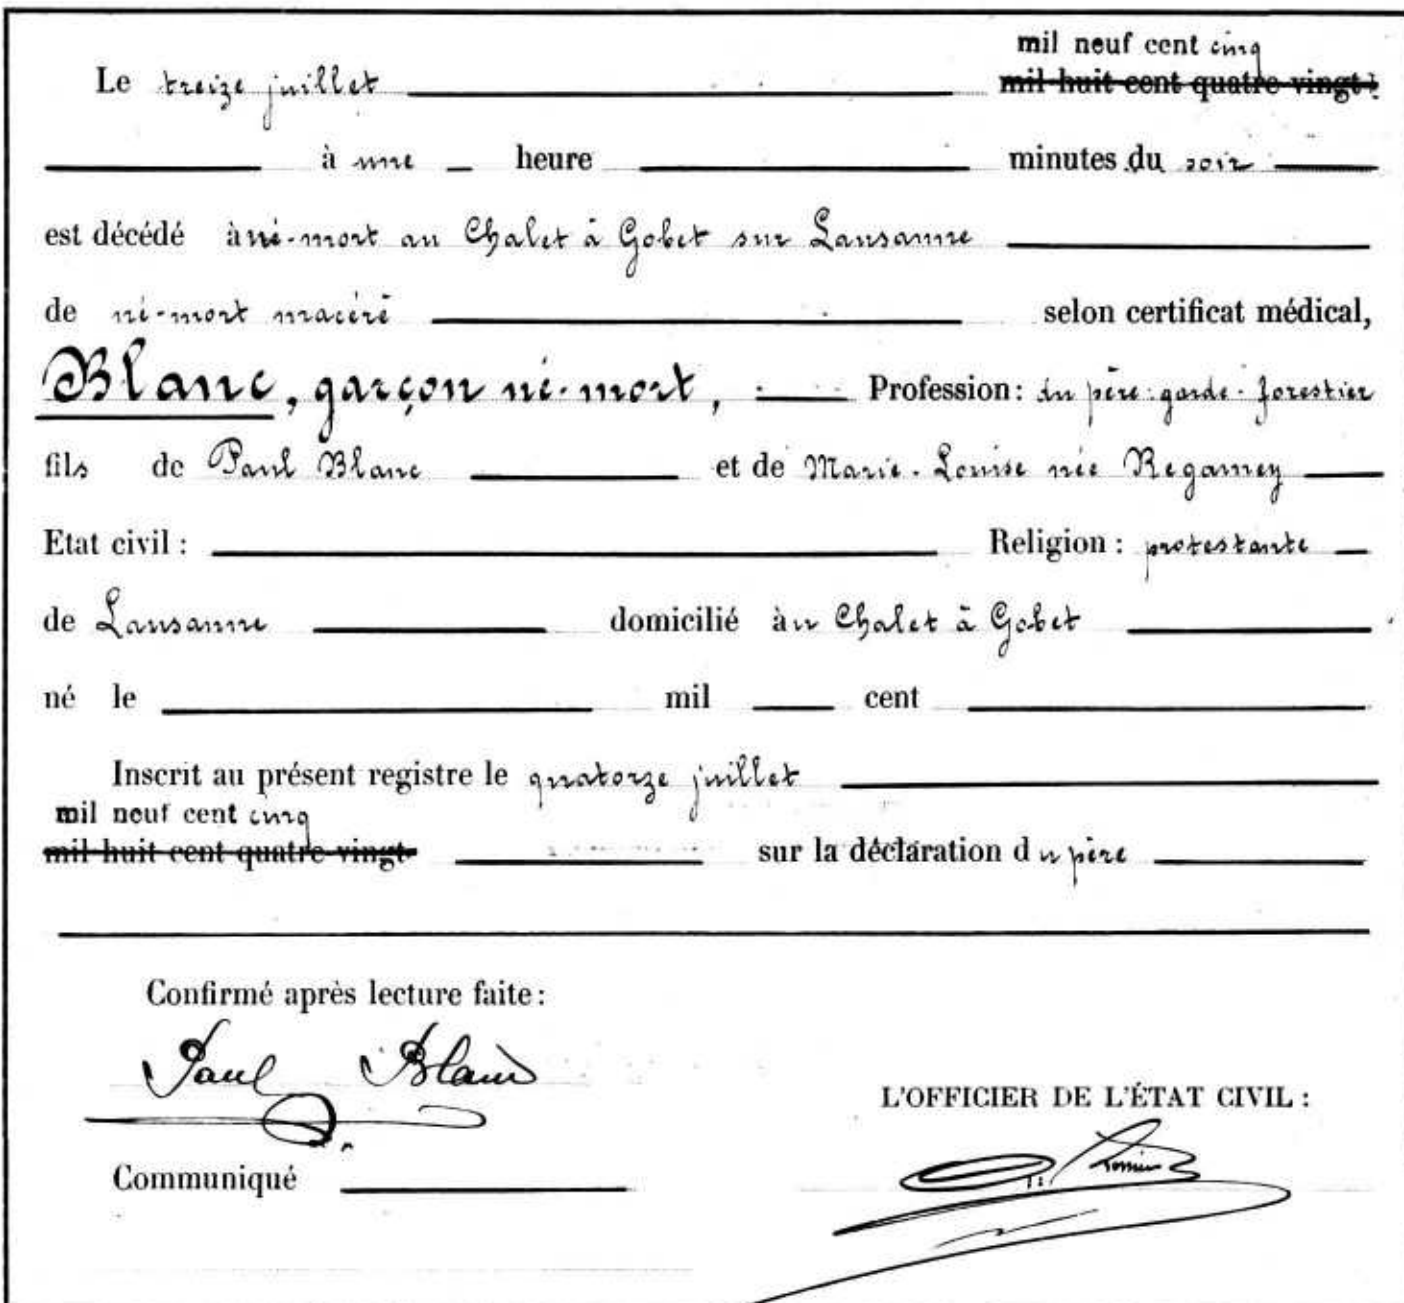 mil neuf cent cinq
Le treize juillet mil huit cent quatre-vingt-
à une heure minutes du soir
est décédé à né-mort au Chalet à Gobet sur Lausanne
de né-mort macéré selon certificat médical,
Blanc, garçon né-mort, Profession: du père: garde-forestier
fils de Paul Blanc et de Marie-Louise née Regamey
Etat civil: Religion: protestante
de Lausanne domicilié au Chalet à Gobet
né le mil cent
Inscrit au présent registre le quatorze juillet
mil neuf cent cinq
mil huit cent quatre-vingt- sur la déclaration du père
Confirmé après lecture faite:
Paul Blanc
L'OFFICIER DE L'ÉTAT CIVIL:
Communiqué